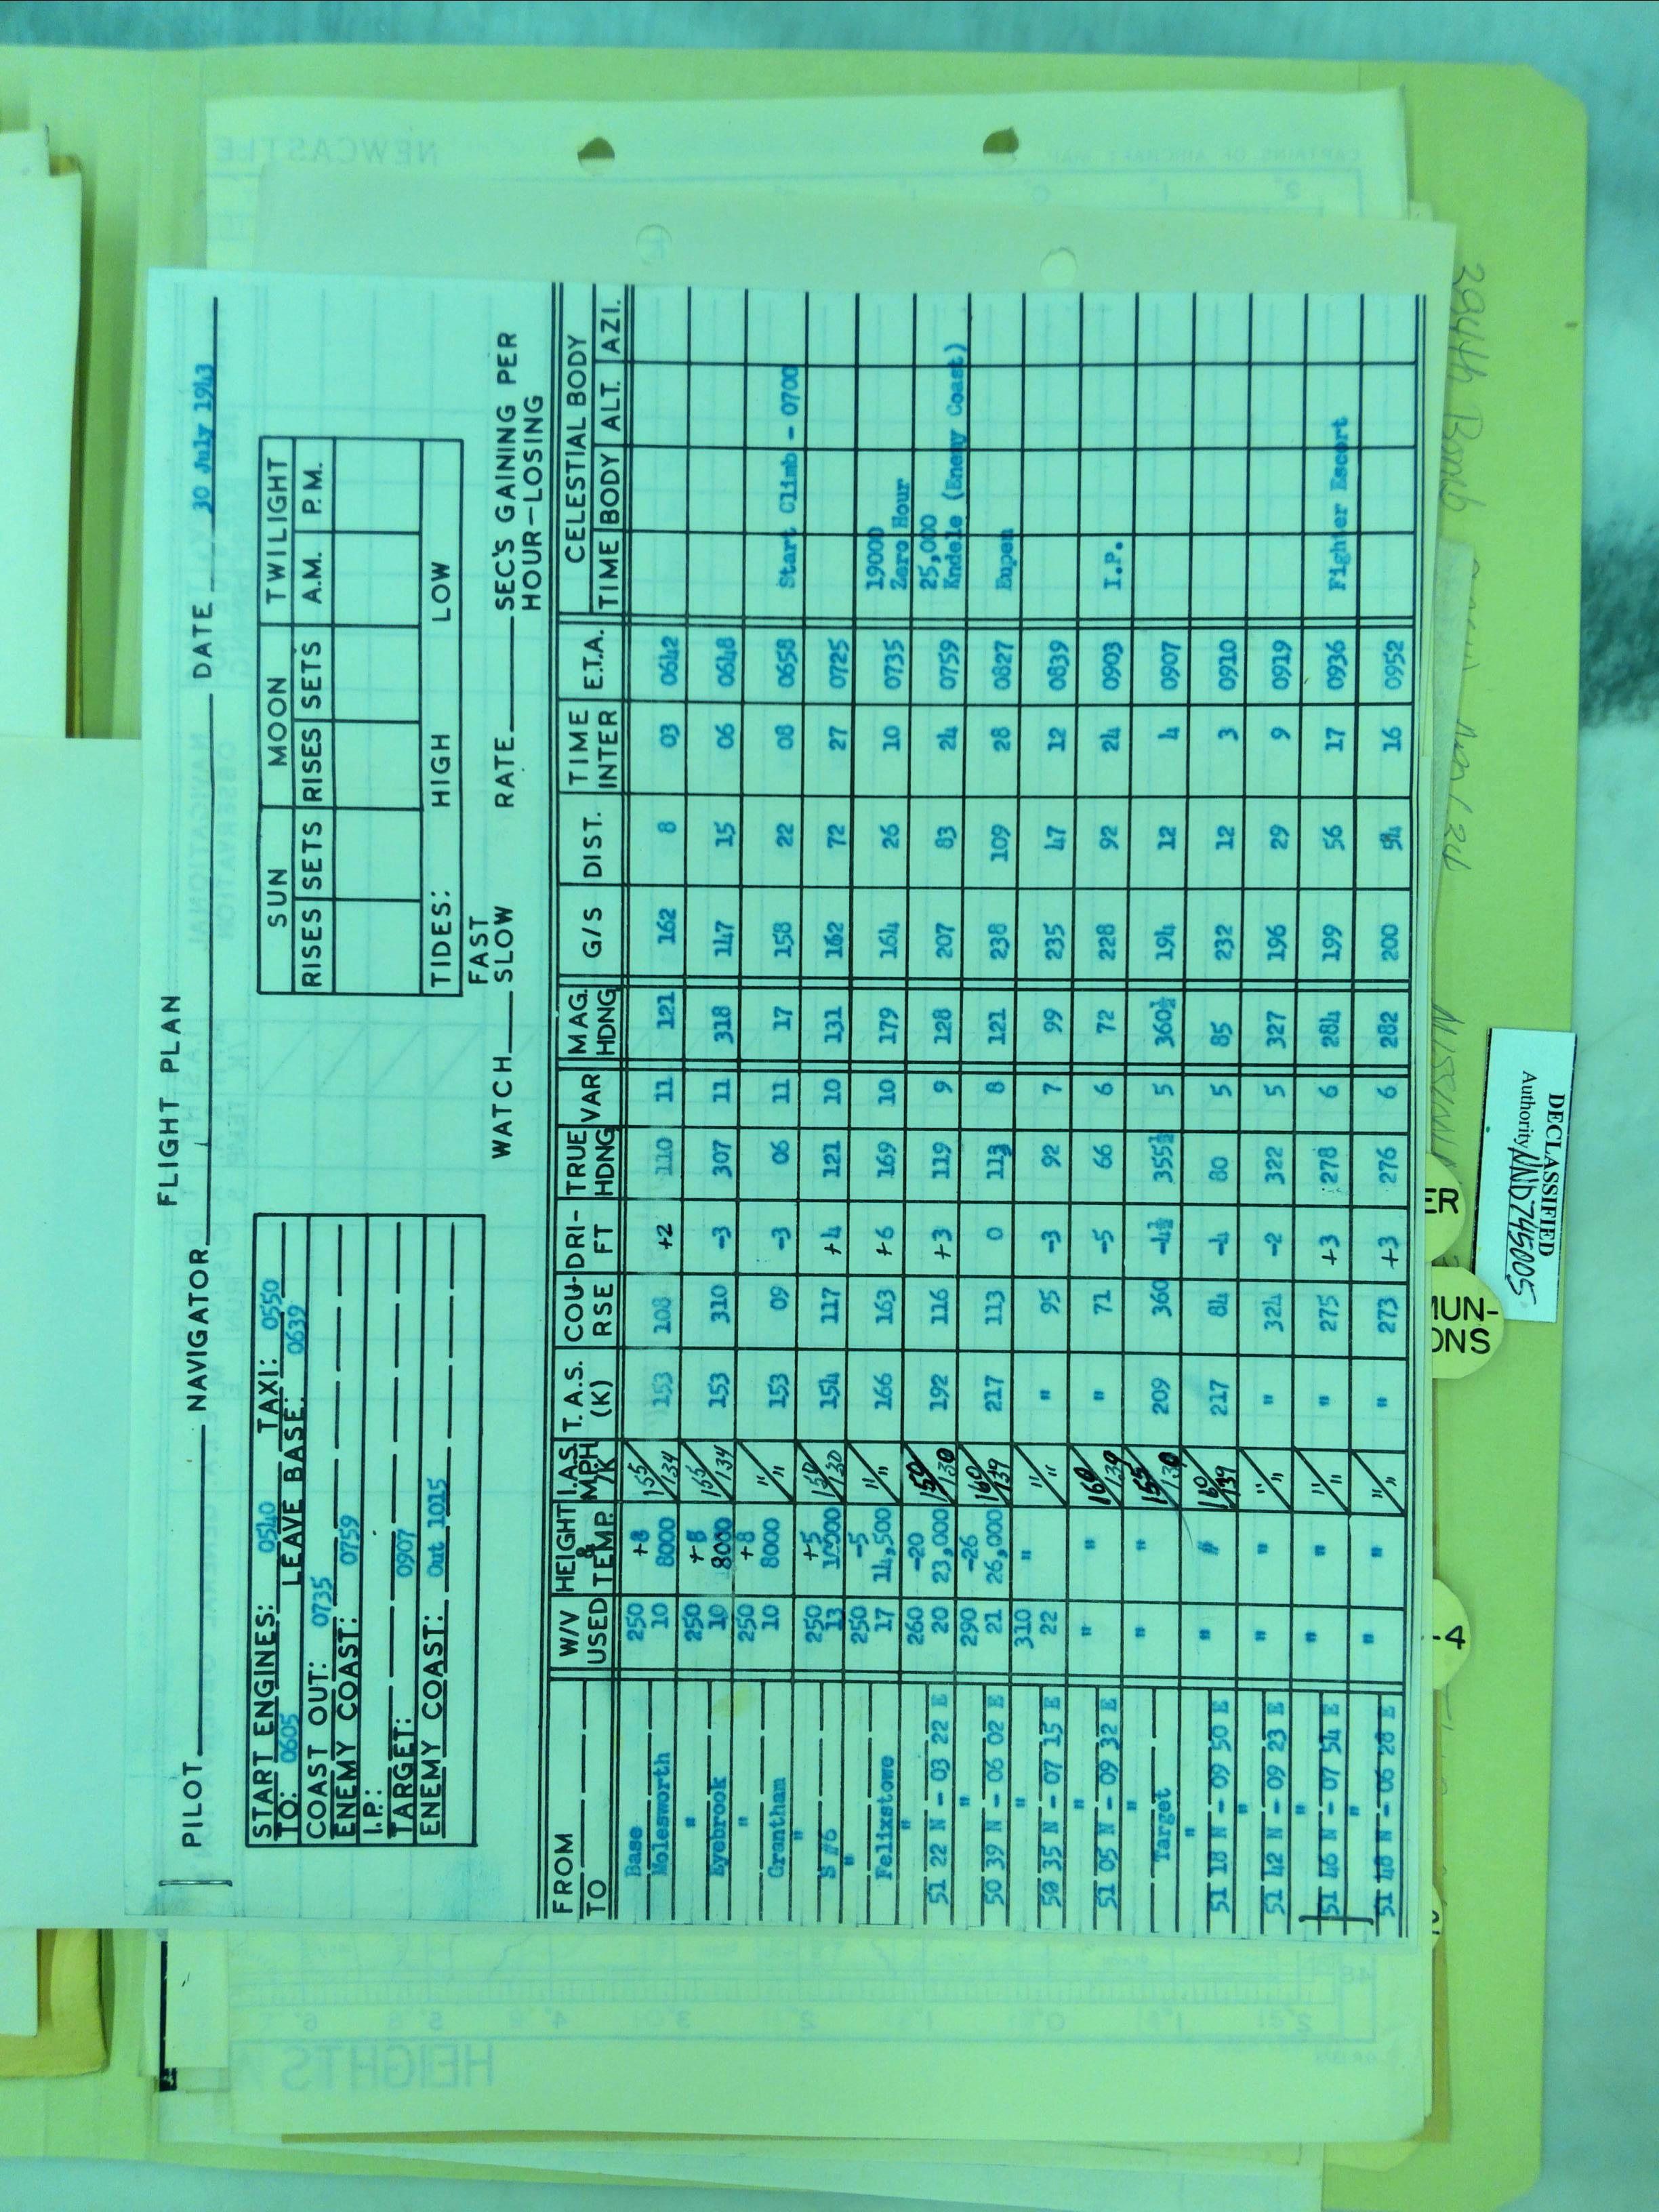 FLIGHT PLAN
PILOT NAVIGATOR DATE 30 July 1943
START ENGINES: 0540 TAXI: 0550
TO: 0605 LEAVE BASE: 0639
COAST OUT: 0735
ENEMY COAST: 0759
I.P.:
TARGET: 0907
ENEMY COAST: Out 1015
SUN MOON TWILIGHT
RISES SETS RISES SETS A.M. P.M.
TIDES: HIGH LOW
WATCH FAST SLOW RATE SEC'S GAINING PER HOUR-LOSING
FROM TO W/V USED HEIGHT & TEMP. I.A.S. MPH/K T.A.S. (K) COU-RSE DRI-FT TRUE HDNG VAR MAG. HDNG G/S DIST. TIME INTER E.T.A. CELESTIAL BODY
TIME BODY ALT. AZI.
Base Molesworth 250 10 +8 8000 155/134 153 108 +2 110 11 121 162 8 03 0642
" Eyebrook 250 10 +8 8000 155/134 153 310 -3 307 11 318 147 15 06 0648
" Grantham 250 10 +8 8000 "/" 153 09 -3 06 11 17 158 22 08 0658 Start Climb - 0700
" S #6 250 13 +5 10000 150/130 154 117 +4 121 10 131 162 72 27 0725
" Felixstowe 250 17 -5 14,500 "/" 166 163 +6 169 10 179 164 26 10 0735 19000 Zero Hour
" 51 22 N - 03 22 E 260 20 -20 23,000 150/130 192 116 +3 119 9 128 207 83 24 0759 25,000 Kndele (Enemy Coast)
50 39 N - 06 02 E 290 21 -26 26,000 160/139 217 113 0 113 8 121 238 109 28 0827 Eupen
" 50 35 N - 07 15 E 310 22 " "/" " 95 -3 92 7 99 235 47 12 0839
" 51 05 N - 09 32 E " " 160/139 " 71 -5 66 6 72 228 92 24 0903 I.P.
" Target " " 155/130 209 360 -4½ 355½ 5 360½ 194 12 4 0907
" 51 18 N - 09 50 E " " 160/139 217 84 -4 80 5 85 232 12 3 0910
" 51 42 N - 09 23 E " " "/" " 324 -2 322 5 327 196 29 9 0919
" 51 46 N - 07 54 E " " "/" " 275 +3 278 6 284 199 56 17 0936 Fighter Escort
" 51 48 N - 06 28 E " " "/" " 273 +3 276 6 282 200 54 16 0952
DECLASSIFIED
Authority NND745005
NEWCASTLE
HEIGHTS
ER
MUN-
ONS
-4